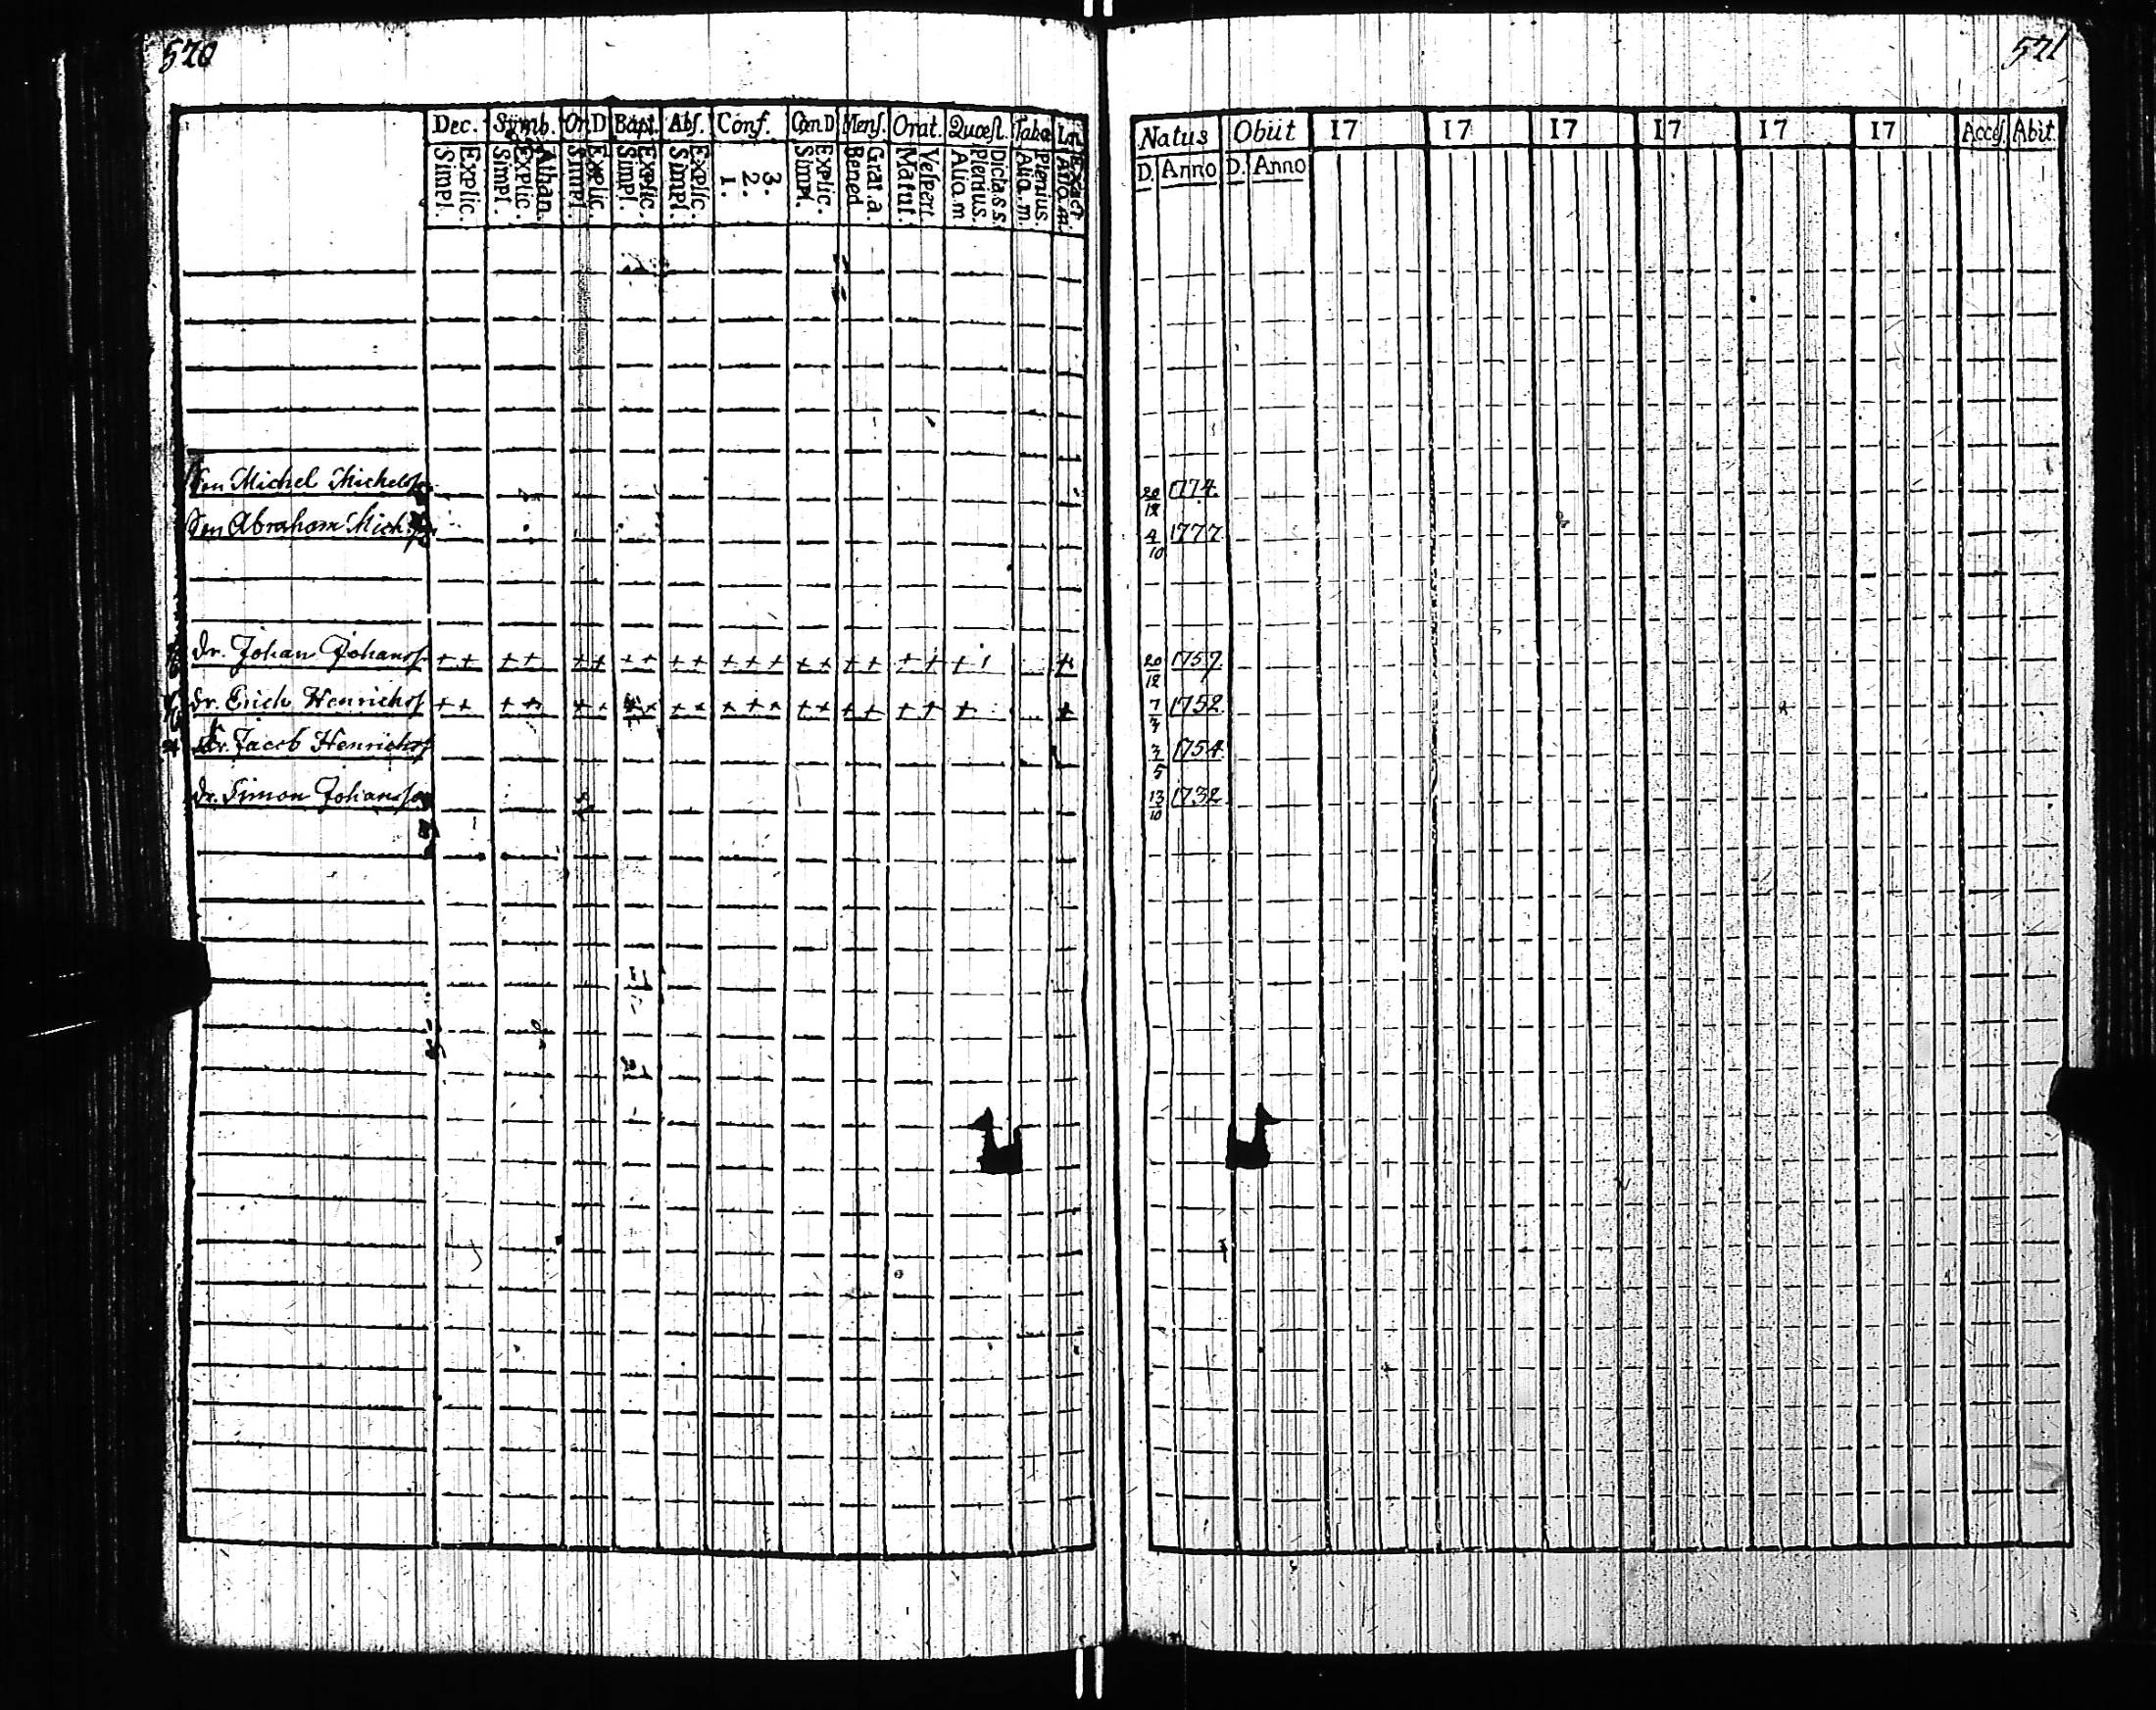 520
521
Dec. Symb. Or.D Bapt. Abs. Conf. Cœn.D Mens. Orat. Quæst. Taba
Simpl. Explic. Simpl. Explic. Athan. Simpl. Explic. Simpl. Explic. Simpl. Explic. 1. 2. 3. Simpl. Explic. Bened. Grat. a. Matut. Vespert. Aliq.m Plenius. Dicta.s.s. Aliq.m. Plenius. Aliq.m. Exact.
Natus Obiit 17 17 17 17 17 17 Acces. Abit.
D. Anno D. Anno
Son Michel Michelss. 20/12 1774.
Son Abraham Mich. 4/10 1777
dr. Johan Johanss. ++ ++ ++ ++ ++ +++ ++ ++ ++ + + 20/12 1757.
dr. Erich Henrichss ++ ++ ++ ++ ++ +++ ++ ++ ++ + + 7/3 1752.
dr. Jacob Henrichss 3/5 1754.
dr. Simon Johansson 13/10 1732.